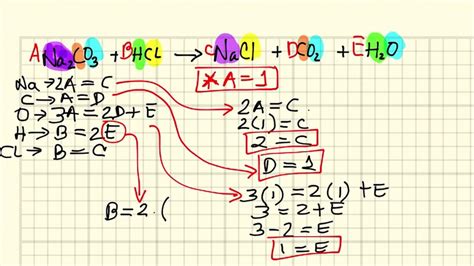 ANa₂CO₃ + BHCL → CNaCl + DCO₂ + EH₂O
*A=1
Na→2A=C
C→A=D
O→3A=2D+E
H→B=2E
CL→B=C
2A=C
2(1)=C
2=C
D=1
3(1)=2(1)+E
3=2+E
3-2=E
1=E
B=2.(